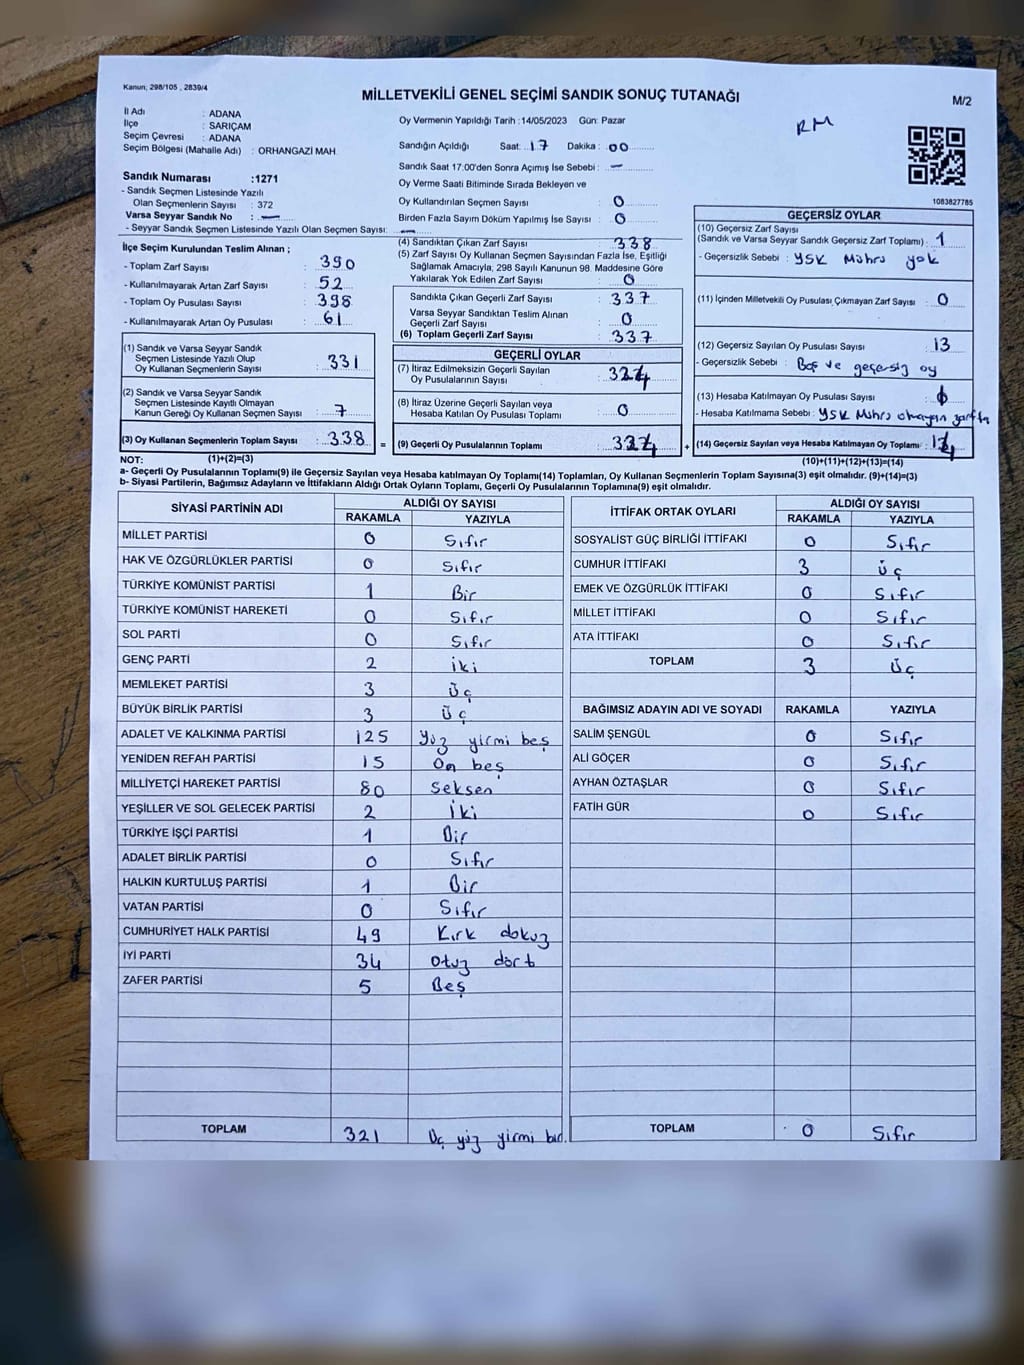 Kanun; 298/105 , 2839/4
MİLLETVEKİLİ GENEL SEÇİMİ SANDIK SONUÇ TUTANAĞI
M/2
İl Adı : ADANA
İlçe : SARIÇAM
Seçim Çevresi : ADANA
Seçim Bölgesi (Mahalle Adı) : ORHANGAZİ MAH.
Sandık Numarası :1271
- Sandık Seçmen Listesinde Yazılı
Olan Seçmenlerin Sayısı : 372
Varsa Seyyar Sandık No : —
- Seyyar Sandık Seçmen Listesinde Yazılı Olan Seçmen Sayısı: —
Oy Vermenin Yapıldığı Tarih :14/05/2023 Gün: Pazar
RM
Sandığın Açıldığı Saat: 17 Dakika : 00
Sandık Saat 17:00'den Sonra Açımış İse Sebebi : —
Oy Verme Saati Bitiminde Sırada Bekleyen ve
Oy Kullandırılan Seçmen Sayısı : 0
Birden Fazla Sayım Döküm Yapılmış İse Sayısı : 0
1083827785
İlçe Seçim Kurulundan Teslim Alınan ;
- Toplam Zarf Sayısı : 390
- Kullanılmayarak Artan Zarf Sayısı : 52
- Toplam Oy Pusulası Sayısı : 398
- Kullanılmayarak Artan Oy Pusulası : 61
(1) Sandık ve Varsa Seyyar Sandık
Seçmen Listesinde Yazılı Olup
Oy Kullanan Seçmenlerin Sayısı : 331
(2) Sandık ve Varsa Seyyar Sandık
Seçmen Listesinde Kayıtlı Olmayan
Kanun Gereği Oy Kullanan Seçmen Sayısı : 7
(3) Oy Kullanan Seçmenlerin Toplam Sayısı : 338 =
(4) Sandıktan Çıkan Zarf Sayısı : 338
(5) Zarf Sayısı Oy Kullanan Seçmen Sayısından Fazla İse, Eşitliği
Sağlamak Amacıyla, 298 Sayılı Kanunun 98. Maddesine Göre
Yakılarak Yok Edilen Zarf Sayısı : 0
Sandıkta Çıkan Geçerli Zarf Sayısı : 337
Varsa Seyyar Sandıktan Teslim Alınan
Geçerli Zarf Sayısı : 0
(6) Toplam Geçerli Zarf Sayısı : 337
GEÇERLİ OYLAR
(7) İtiraz Edilmeksizin Geçerli Sayılan
Oy Pusulalarının Sayısı : 324
(8) İtiraz Üzerine Geçerli Sayılan veya
Hesaba Katılan Oy Pusulası Toplamı : 0
(9) Geçerli Oy Pusulalarının Toplamı : 324 +
GEÇERSİZ OYLAR
(10) Geçersiz Zarf Sayısı
(Sandık ve Varsa Seyyar Sandık Geçersiz Zarf Toplamı) : 1
- Geçersizlik Sebebi : YSK Mührü yok
(11) İçinden Milletvekili Oy Pusulası Çıkmayan Zarf Sayısı : 0
(12) Geçersiz Sayılan Oy Pusulası Sayısı : 13
- Geçersizlik Sebebi : Boş ve geçersiz oy
(13) Hesaba Katılmayan Oy Pusulası Sayısı :
- Hesaba Katılmama Sebebi : YSK Mührü olmayan zarfta
(14) Geçersiz Sayılan veya Hesaba Katılmayan Oy Toplamı : 14
NOT: (1)+(2)=(3)
(10)+(11)+(12)+(13)=(14)
a- Geçerli Oy Pusulalarının Toplamı(9) ile Geçersiz Sayılan veya Hesaba katılmayan Oy Toplamı(14) Toplamları, Oy Kullanan Seçmenlerin Toplam Sayısına(3) eşit olmalıdır. (9)+(14)=(3)
b- Siyasi Partilerin, Bağımsız Adayların ve İttifakların Aldığı Oy Sayıları Toplamı, Geçerli Oy Pusulalarının Toplamına(9) eşit olmalıdır.
SİYASİ PARTİNİN ADI ALDIĞI OY SAYISI
RAKAMLA YAZIYLA
MİLLET PARTİSİ 0 Sıfır
HAK VE ÖZGÜRLÜKLER PARTİSİ 0 Sıfır
TÜRKİYE KOMÜNİST PARTİSİ 1 Bir
TÜRKİYE KOMÜNİST HAREKETİ 0 Sıfır
SOL PARTİ 0 Sıfır
GENÇ PARTİ 2 İki
MEMLEKET PARTİSİ 3 Üç
BÜYÜK BİRLİK PARTİSİ 3 Üç
ADALET VE KALKINMA PARTİSİ 125 Yüz yirmi beş
YENİDEN REFAH PARTİSİ 15 On beş
MİLLİYETÇİ HAREKET PARTİSİ 80 Seksen
YEŞİLLER VE SOL GELECEK PARTİSİ 2 İki
TÜRKİYE İŞÇİ PARTİSİ 1 Bir
ADALET BİRLİK PARTİSİ 0 Sıfır
HALKIN KURTULUŞ PARTİSİ 1 Bir
VATAN PARTİSİ 0 Sıfır
CUMHURİYET HALK PARTİSİ 49 Kırk dokuz
İYİ PARTİ 34 Otuz dört
ZAFER PARTİSİ 5 Beş
TOPLAM 321 Üç yüz yirmi bir
İTTİFAK ORTAK OYLARI ALDIĞI OY SAYISI
RAKAMLA YAZIYLA
SOSYALİST GÜÇ BİRLİĞİ İTTİFAKI 0 Sıfır
CUMHUR İTTİFAKI 3 Üç
EMEK VE ÖZGÜRLÜK İTTİFAKI 0 Sıfır
MİLLET İTTİFAKI 0 Sıfır
ATA İTTİFAKI 0 Sıfır
TOPLAM 3 Üç
BAĞIMSIZ ADAYIN ADI VE SOYADI RAKAMLA YAZIYLA
SALİM ŞENGÜL 0 Sıfır
ALİ GÖÇER 0 Sıfır
AYHAN ÖZTAŞLAR 0 Sıfır
FATİH GÜR 0 Sıfır
TOPLAM 0 Sıfır